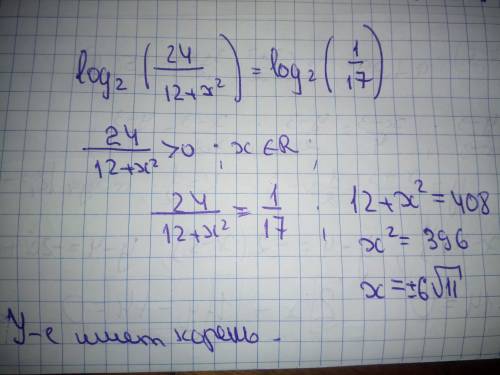 log₂(24/(12+x²)) = log₂(1/17)
24/(12+x²) > 0 ; x ∈ R ;
24/(12+x²) = 1/17 ; 12+x² = 408
x² = 396
x = ±6√11
У-е имеет корень.